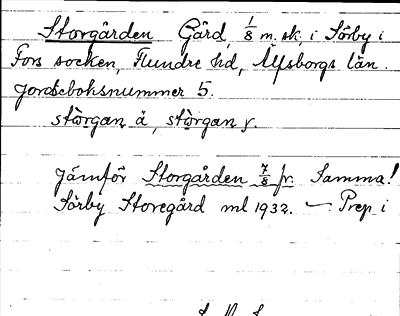 Storgården Gård, 1/8 m. sk. i Sörby i
Fors socken, Flundre hd, Älfsborgs län.
Jordeboksnummer 5.
stòrgan å, stòrgan y.
Jämför Storgården 7/8 fr. Samma!
Sörby Storegård ml 1932. — Prep i